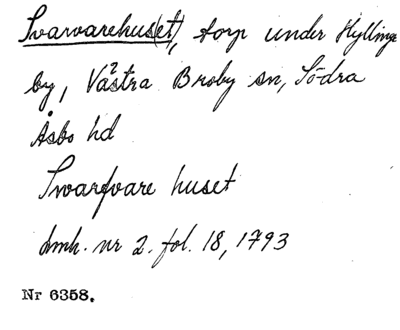 Svarvarehus(et), torp under Hyllinge
by, Västra Broby sn, Södra
Åsbo hd
Swarfvare huset
dmh. nr 2. fol. 18, 1793
Nr 6358.